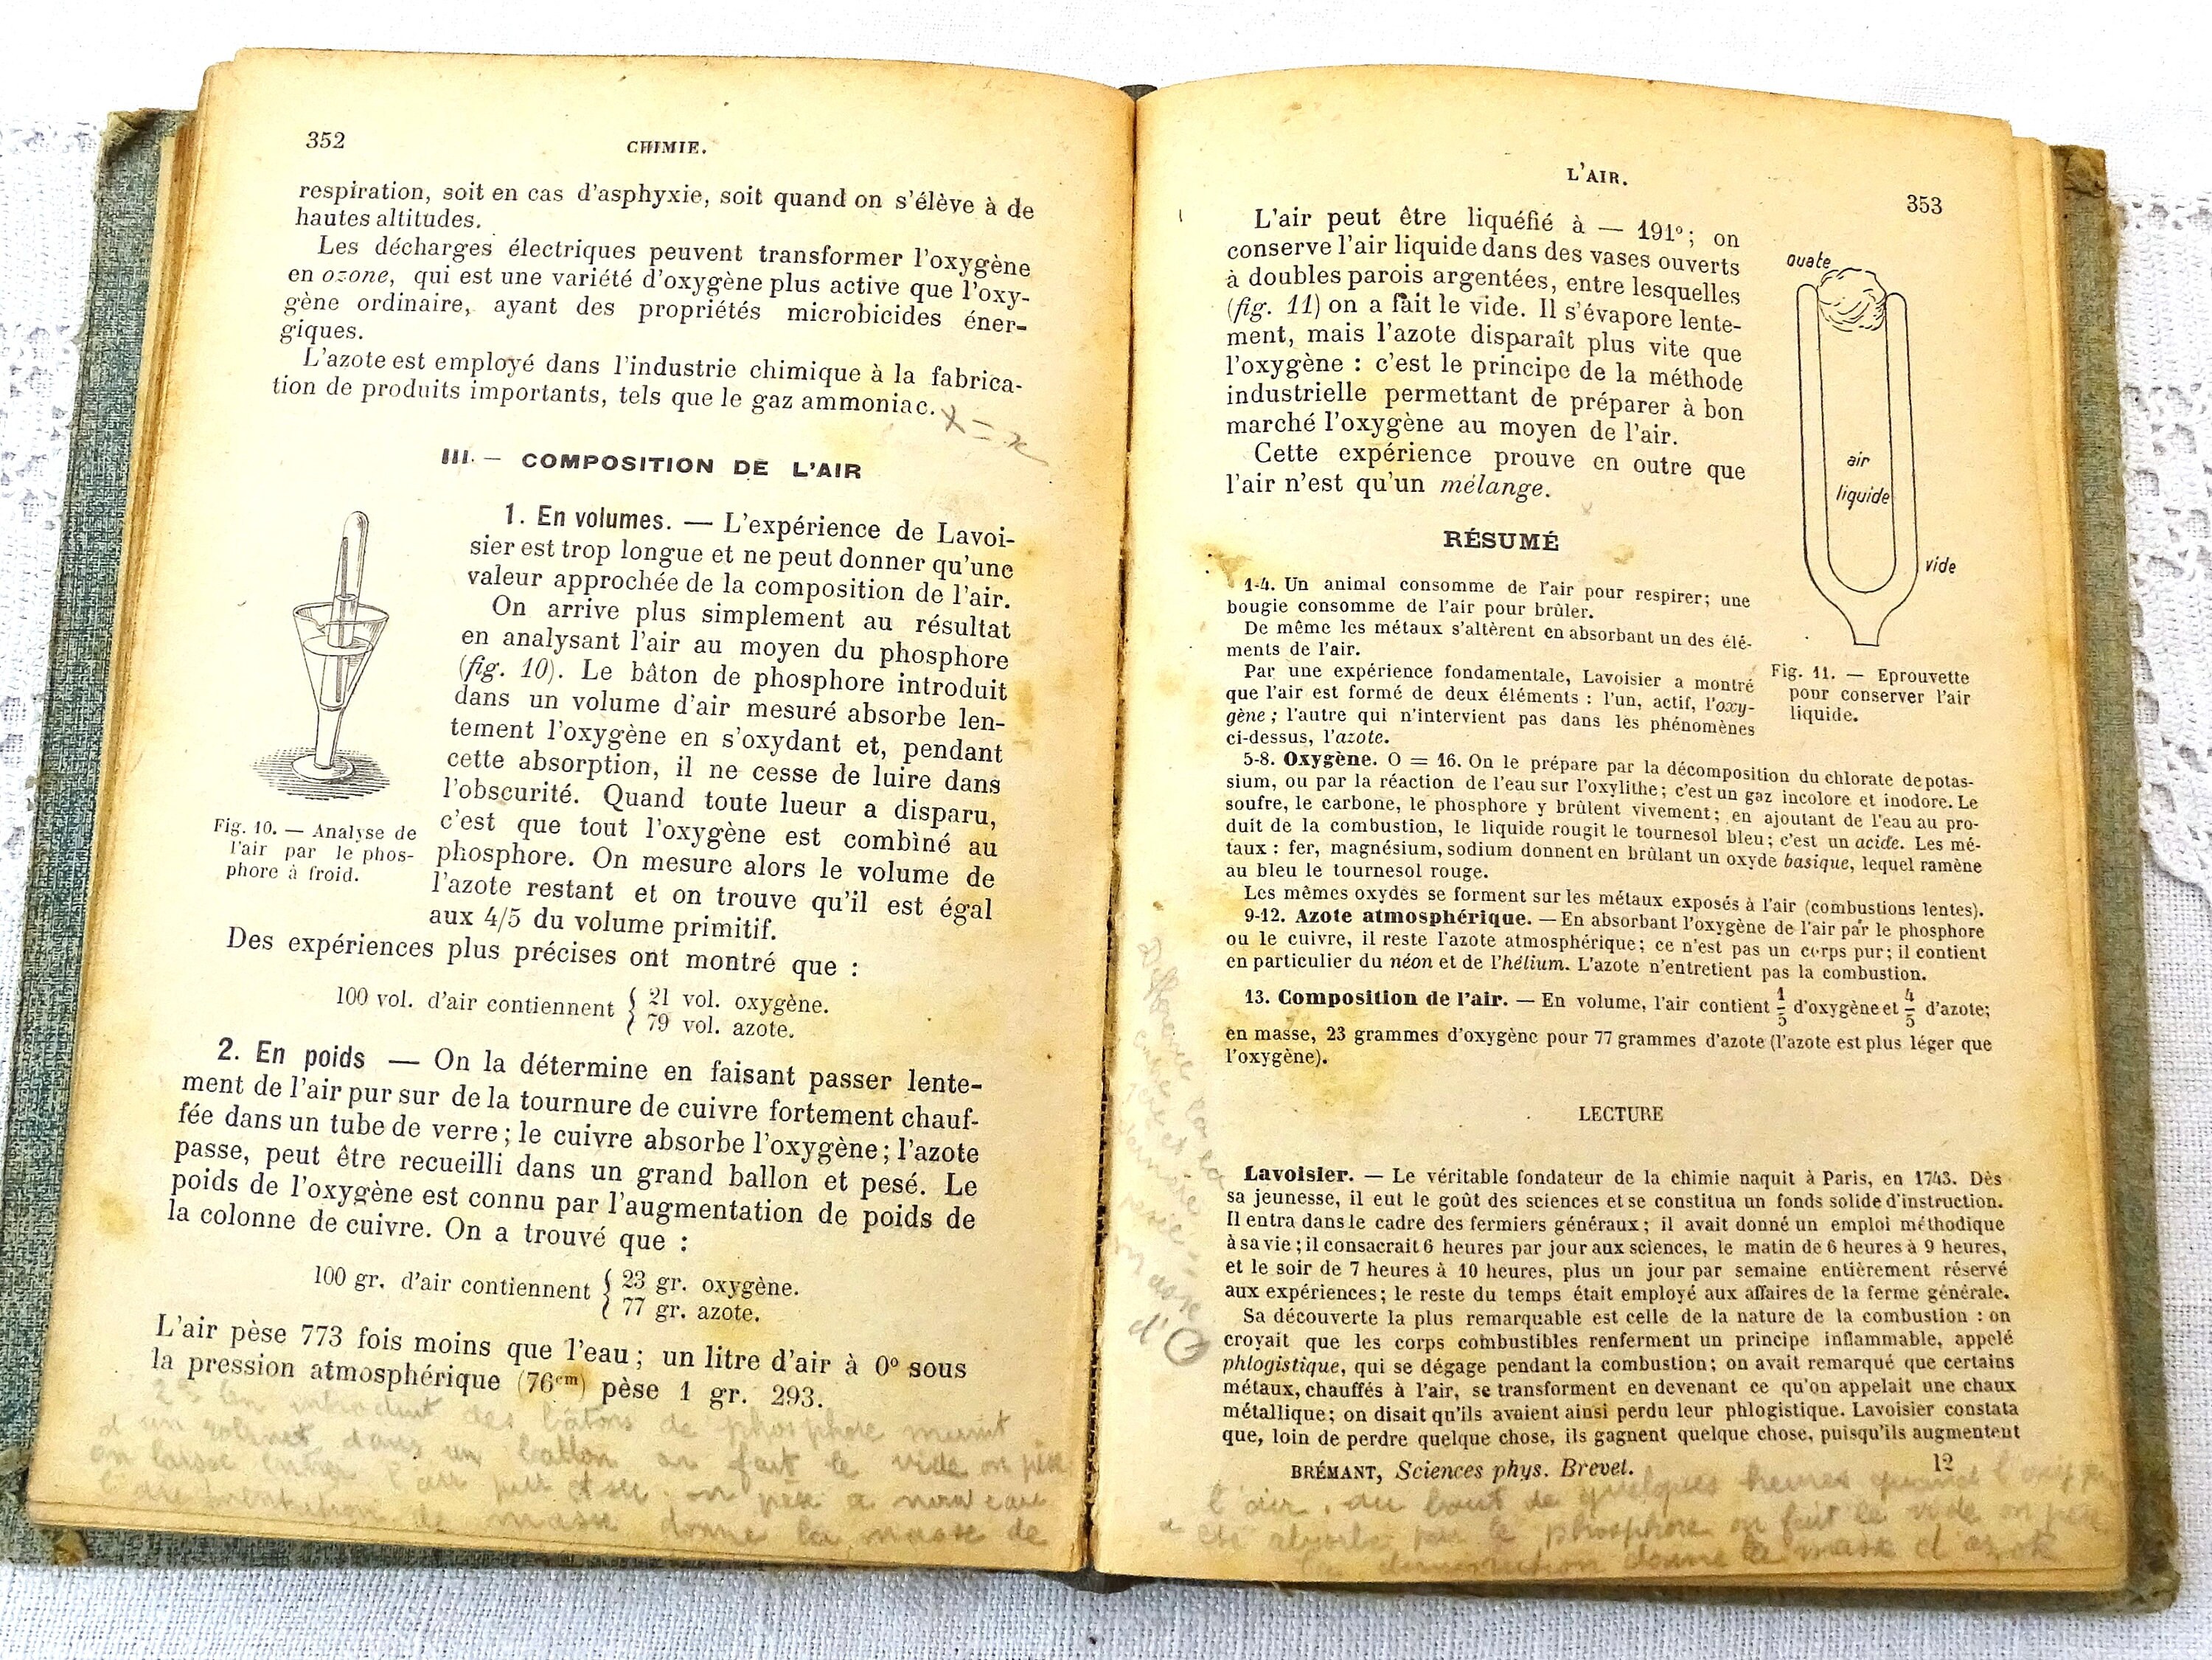 352
CHIMIE.
respiration, soit en cas d'asphyxie, soit quand on s'élève à de
hautes altitudes.
Les décharges électriques peuvent transformer l'oxygène
en ozone, qui est une variété d'oxygène plus active que l'oxy-
gène ordinaire, ayant des propriétés microbicides éner-
giques.
L'azote est employé dans l'industrie chimique à la fabrica-
tion de produits importants, tels que le gaz ammoniac.
III. — COMPOSITION DE L'AIR
1. En volumes. — L'expérience de Lavoi-
sier est trop longue et ne peut donner qu'une
valeur approchée de la composition de l'air.
On arrive plus simplement au résultat
en analysant l'air au moyen du phosphore
(fig. 10). Le bâton de phosphore introduit
dans un volume d'air mesuré absorbe len-
tement l'oxygène en s'oxydant et, pendant
cette absorption, il ne cesse de luire dans
l'obscurité. Quand toute lueur a disparu,
c'est que tout l'oxygène est combiné au
phosphore. On mesure alors le volume de
l'azote restant et on trouve qu'il est égal
aux 4/5 du volume primitif.
Fig. 10. — Analyse de
l'air par le phos-
phore à froid.
Des expériences plus précises ont montré que :
100 vol. d'air contiennent { 21 vol. oxygène.
79 vol. azote.
2. En poids — On la détermine en faisant passer lente-
ment de l'air pur sur de la tournure de cuivre fortement chauf-
fée dans un tube de verre ; le cuivre absorbe l'oxygène ; l'azote
passe, peut être recueilli dans un grand ballon et pesé. Le
poids de l'oxygène est connu par l'augmentation de poids de
la colonne de cuivre. On a trouvé que :
100 gr. d'air contiennent { 23 gr. oxygène.
77 gr. azote.
L'air pèse 773 fois moins que l'eau ; un litre d'air à 0° sous
la pression atmosphérique (76cm) pèse 1 gr. 293.
introduit des bâtons de phosphore munit
d'un robinet dans un ballon on fait le vide on pèse
on laisse entrer l'air pur et sec. on pèse a nouveau
l'augmentation de masse donne la masse de
L'AIR.
353
L'air peut être liquéfié à — 191° ; on
conserve l'air liquide dans des vases ouverts
à doubles parois argentées, entre lesquelles
(fig. 11) on a fait le vide. Il s'évapore lente-
ment, mais l'azote disparaît plus vite que
l'oxygène : c'est le principe de la méthode
industrielle permettant de préparer à bon
marché l'oxygène au moyen de l'air.
Cette expérience prouve en outre que
l'air n'est qu'un mélange.
ouate
air
liquide
vide
Fig. 11. — Eprouvette
pour conserver l'air
liquide.
RÉSUMÉ
1-4. Un animal consomme de l'air pour respirer ; une
bougie consomme de l'air pour brûler.
De même les métaux s'altèrent en absorbant un des élé-
ments de l'air.
Par une expérience fondamentale, Lavoisier a montré
que l'air est formé de deux éléments : l'un, actif, l'oxy-
gène ; l'autre qui n'intervient pas dans les phénomènes
ci-dessus, l'azote.
5-8. Oxygène. O = 16. On le prépare par la décomposition du chlorate de potas-
sium, ou par la réaction de l'eau sur l'oxylithe ; c'est un gaz incolore et inodore. Le
soufre, le carbone, le phosphore y brûlent vivement ; en ajoutant de l'eau au pro-
duit de la combustion, le liquide rougit le tournesol bleu ; c'est un acide. Les mé-
taux : fer, magnésium, sodium donnent en brûlant un oxyde basique, lequel ramène
au bleu le tournesol rouge.
Les mêmes oxydes se forment sur les métaux exposés à l'air (combustions lentes).
9-12. Azote atmosphérique. — En absorbant l'oxygène de l'air par le phosphore
ou le cuivre, il reste l'azote atmosphérique ; ce n'est pas un corps pur ; il contient
en particulier du néon et de l'hélium. L'azote n'entretient pas la combustion.
13. Composition de l'air. — En volume, l'air contient 1/5 d'oxygène et 4/5 d'azote ;
en masse, 23 grammes d'oxygène pour 77 grammes d'azote (l'azote est plus léger que
l'oxygène).
LECTURE
Lavoisier. — Le véritable fondateur de la chimie naquit à Paris, en 1743. Dès
sa jeunesse, il eut le goût des sciences et se constitua un fonds solide d'instruction.
Il entra dans le cadre des fermiers généraux ; il avait donné un emploi méthodique
à sa vie ; il consacrait 6 heures par jour aux sciences, le matin de 6 heures à 9 heures,
et le soir de 7 heures à 10 heures, plus un jour par semaine entièrement réservé
aux expériences ; le reste du temps était employé aux affaires de la ferme générale.
Sa découverte la plus remarquable est celle de la nature de la combustion : on
croyait que les corps combustibles renferment un principe inflammable, appelé
phlogistique, qui se dégage pendant la combustion ; on avait remarqué que certains
métaux, chauffés à l'air, se transforment en devenant ce qu'on appelait une chaux
métallique ; on disait qu'ils avaient ainsi perdu leur phlogistique. Lavoisier constata
que, loin de perdre quelque chose, ils gagnent quelque chose, puisqu'ils augmentent
BRÉMANT, Sciences phys. Brevet.
12
l'air. au bout de quelques heures quand
a été absorbé par le phosphore on fait le vide on pèse
la diminution donne la masse d'azote